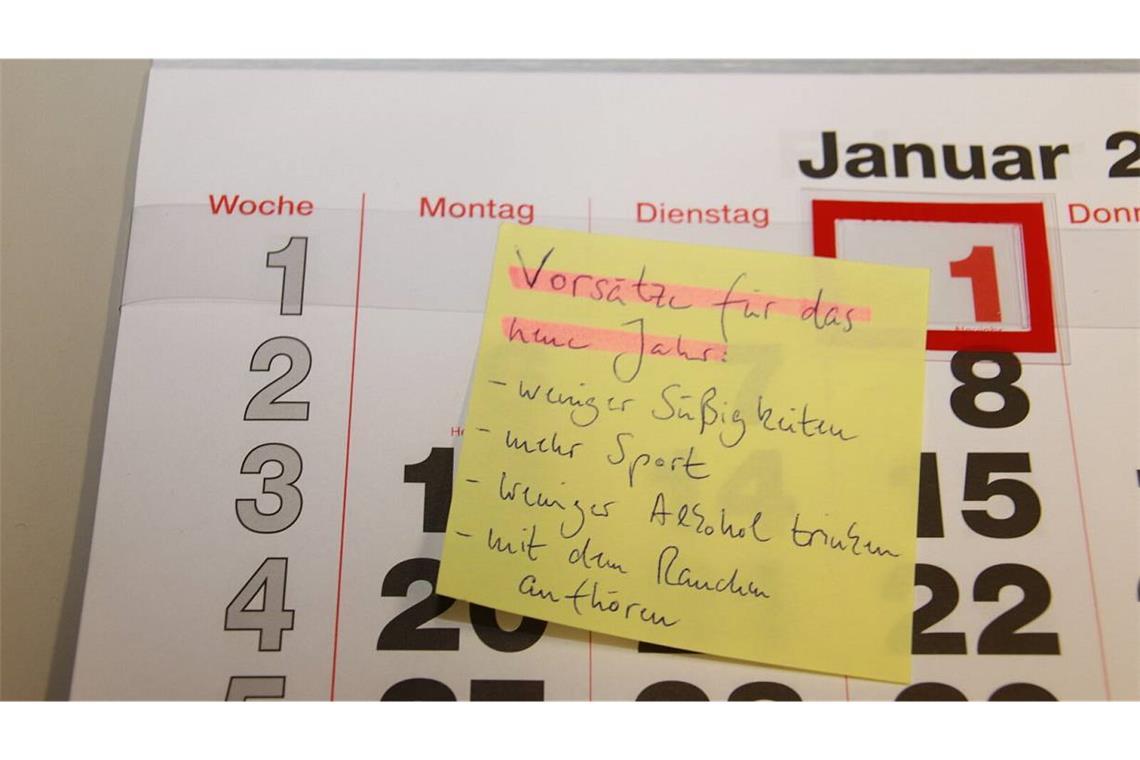 Januar 2
Woche Montag Dienstag Donn
1 1
Neujahr
2 8
3 1 15
4 20 22
5
Vorsätze für das
neue Jahr:
- weniger Süßigkeiten
- mehr Sport
- weniger Alkohol trinken
- mit dem Rauchen
aufhören